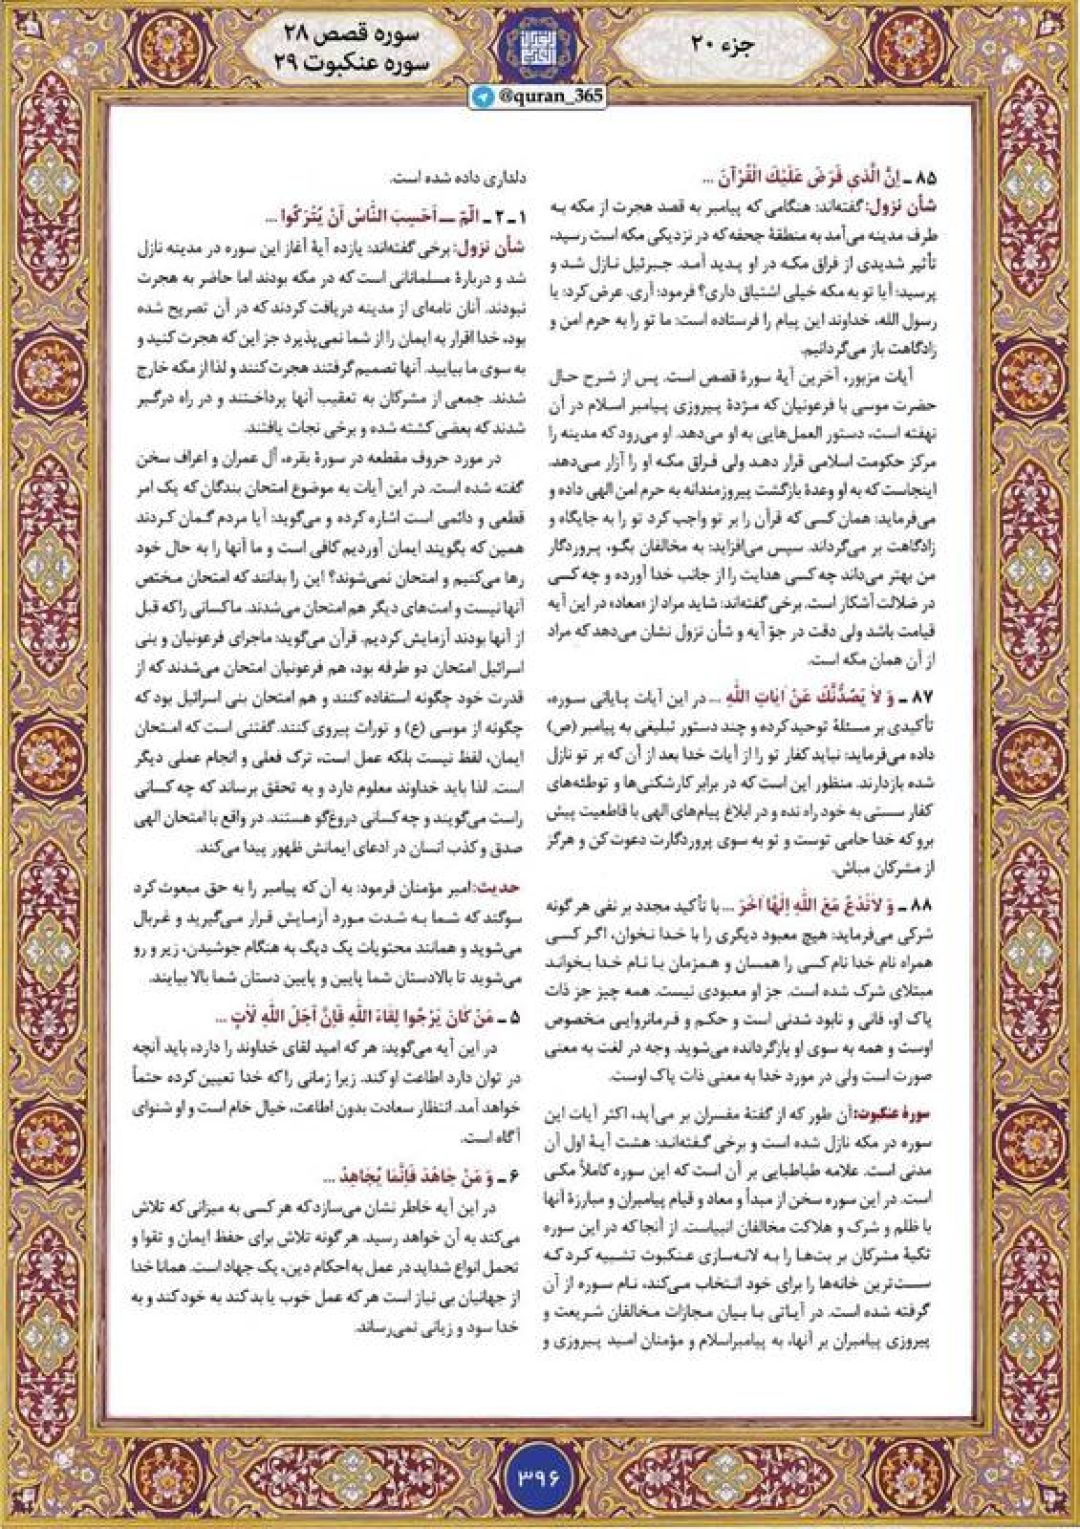 جزء ۲۰
سوره قصص ۲۸
سوره عنکبوت ۲۹
@quran_365
۸۵ ـ اِنَّ الَّذی فَرَضَ عَلَیْكَ الْقُرْآنَ ...
شأن نزول: گفته‌اند: هنگامی که پیامبر به قصد هجرت از مکه به
طرف مدینه می‌آمد به منطقهٔ جحفه که در نزدیکی مکه است رسید،
تأثیر شدیدی از فراق مکه در او پدید آمد. جبرئیل نازل شد و
پرسید: آیا تو به مکه خیلی اشتیاق داری؟ فرمود: آری. عرض کرد: یا
رسول الله، خداوند این پیام را فرستاده است: ما تو را به حرم امن و
زادگاهت باز می‌گردانیم.
آیات مزبور، آخرین آیهٔ سورهٔ قصص است. پس از شرح حال
حضرت موسی با فرعونیان که مژدهٔ پیروزی پیامبر اسلام در آن
نهفته است، دستور العمل‌هایی به او می‌دهد. او می‌رود که مدینه را
مرکز حکومت اسلامی قرار دهد ولی فراق مکه او را آزار می‌دهد.
اینجاست که به او وعدهٔ بازگشت پیروزمندانه به حرم امن الهی داده و
می‌فرماید: همان کسی که قرآن را بر تو واجب کرد تو را به جایگاه و
زادگاهت بر می‌گرداند. سپس می‌افزاید: به مخالفان بگو، پروردگار
من بهتر می‌داند چه کسی هدایت را از جانب خدا آورده و چه کسی
در ضلالت آشکار است. برخی گفته‌اند: شاید مراد از «معاد» در این آیه
قیامت باشد ولی دقت در جوّ آیه و شأن نزول نشان می‌دهد که مراد
از آن همان مکه است.
۸۷ ـ وَ لاٰ یَصُدُّنَّكَ عَنْ اٰیاتِ اللّٰهِ ... در این آیات پایانی سوره،
تأکیدی بر مسئلهٔ توحید کرده و چند دستور تبلیغی به پیامبر (ص)
داده می‌فرماید: نباید کفار تو را از آیات خدا بعد از آن که بر تو نازل
شده بازدارند. منظور این است که در برابر کارشکنی‌ها و توطئه‌های
کفار سستی به خود راه نده و در ابلاغ پیام‌های الهی با قاطعیت پیش
برو که خدا حامی توست و تو به سوی پروردگارت دعوت کن و هرگز
از مشرکان مباش.
۸۸ ـ وَ لاٰتَدْعُ مَعَ اللّٰهِ اِلٰهًا آخَرَ ... با تأکید مجدد بر نفی هر گونه
شرکی می‌فرماید: هیچ معبود دیگری را با خدا نخوان، اگر کسی
همراه نام خدا نام کسی را همسان و همزمان با نام خدا بخواند
مبتلای شرک شده است. جز او معبودی نیست. همه چیز جز ذات
پاک او، فانی و نابود شدنی است و حکم و فرمانروایی مخصوص
اوست و همه به سوی او بازگردانده می‌شوید. وجه در لغت به معنی
صورت است ولی در مورد خدا به معنی ذات پاک اوست.
سورهٔ عنکبوت: آن طور که از گفتهٔ مفسران بر می‌آید، اکثر آیات این
سوره در مکه نازل شده است و برخی گفته‌اند: هشت آیهٔ اول آن
مدنی است. علامه طباطبایی بر آن است که این سوره کاملاً مکی
است. در این سوره سخن از مبدأ و معاد و قیام پیامبران و مبارزهٔ آنها
با ظلم و شرک و هلاکت مخالفان انبیاست. از آنجا که در این سوره
تکیهٔ مشرکان بر بت‌ها را به لانه‌سازی عنکبوت تشبیه کرد که
سست‌ترین خانه‌ها را برای خود انتخاب می‌کند، نام سوره از آن
گرفته شده است. در آیاتی با بیان مجازات مخالفان شریعت و
پیروزی پیامبران بر آنها، به پیامبراسلام و مؤمنان امید پیروزی و
دلداری داده شده است.
۱ـ۲ ـ الٓمٓ ـــ اَحَسِبَ النّٰاسُ اَنْ یُتْرَکُوا ...
شأن نزول: برخی گفته‌اند: یازده آیهٔ آغاز این سوره در مدینه نازل
شد و دربارهٔ مسلمانانی است که در مکه بودند اما حاضر به هجرت
نبودند. آنان نامه‌ای از مدینه دریافت کردند که در آن تصریح شده
بود، خدا اقرار به ایمان را از شما نمی‌پذیرد جز این که هجرت کنید و
به سوی ما بیایید. آنها تصمیم گرفتند هجرت کنند و لذا از مکه خارج
شدند. جمعی از مشرکان به تعقیب آنها پرداختند و در راه درگیر
شدند که بعضی کشته شده و برخی نجات یافتند.
در مورد حروف مقطعه در سورهٔ بقره، آل عمران و اعراف سخن
گفته شده است. در این آیات به موضوع امتحان بندگان که یک امر
قطعی و دائمی است اشاره کرده و می‌گوید: آیا مردم گمان کردند
همین که بگویند ایمان آوردیم کافی است و ما آنها را به حال خود
رها می‌کنیم و امتحان نمی‌شوند؟ این را بدانند که امتحان مختص
آنها نیست و امت‌های دیگر هم امتحان می‌شدند. ما کسانی را که قبل
از آنها بودند آزمایش کردیم. قرآن می‌گوید: ماجرای فرعونیان و بنی
اسرائیل امتحان دو طرفه بود، هم فرعونیان امتحان می‌شدند که از
قدرت خود چگونه استفاده کنند و هم امتحان بنی اسرائیل بود که
چگونه از موسی (ع) و تورات پیروی کنند. گفتنی است که امتحان
ایمان، لفظ نیست بلکه عمل است، ترک فعلی و انجام عملی دیگر
است. لذا باید خداوند معلوم دارد و به تحقق برساند که چه کسانی
راست می‌گویند و چه کسانی دروغ‌گو هستند. در واقع با امتحان الهی
صدق و کذب انسان در ادعای ایمانش ظهور پیدا می‌کند.
حدیث: امیر مؤمنان فرمود: به آن که پیامبر را به حق مبعوث کرد
سوگند که شما به شدت مورد آزمایش قرار می‌گیرید و غربال
می‌شوید و همانند محتویات یک دیگ به هنگام جوشیدن، زیر و رو
می‌شوید تا بالادستان شما پایین و پایین دستان شما بالا بیایند.
۵ ـ مَنْ کٰانَ یَرْجُوا لِقٰاءَ اللّٰهِ فَاِنَّ اَجَلَ اللّٰهِ لَاٰتٍ ...
در این آیه می‌گوید: هر که امید لقای خداوند را دارد، باید آنچه
در توان دارد اطاعت او کند. زیرا زمانی را که خدا تعیین کرده حتماً
خواهد آمد. انتظار سعادت بدون اطاعت، خیال خام است و او شنوای
آگاه است.
۶ ـ وَ مَنْ جٰاهَدَ فَاِنَّمٰا یُجٰاهِدُ ...
در این آیه خاطر نشان می‌سازد که هر کسی به میزانی که تلاش
می‌کند به آن خواهد رسید. هر گونه تلاش برای حفظ ایمان و تقوا و
تحمل انواع شداید در عمل به احکام دین، یک جهاد است. همانا خدا
از جهانیان بی نیاز است هر که عمل خوب یا بد کند به خود کند و به
خدا سود و زیانی نمی‌رساند.
۳۹۶